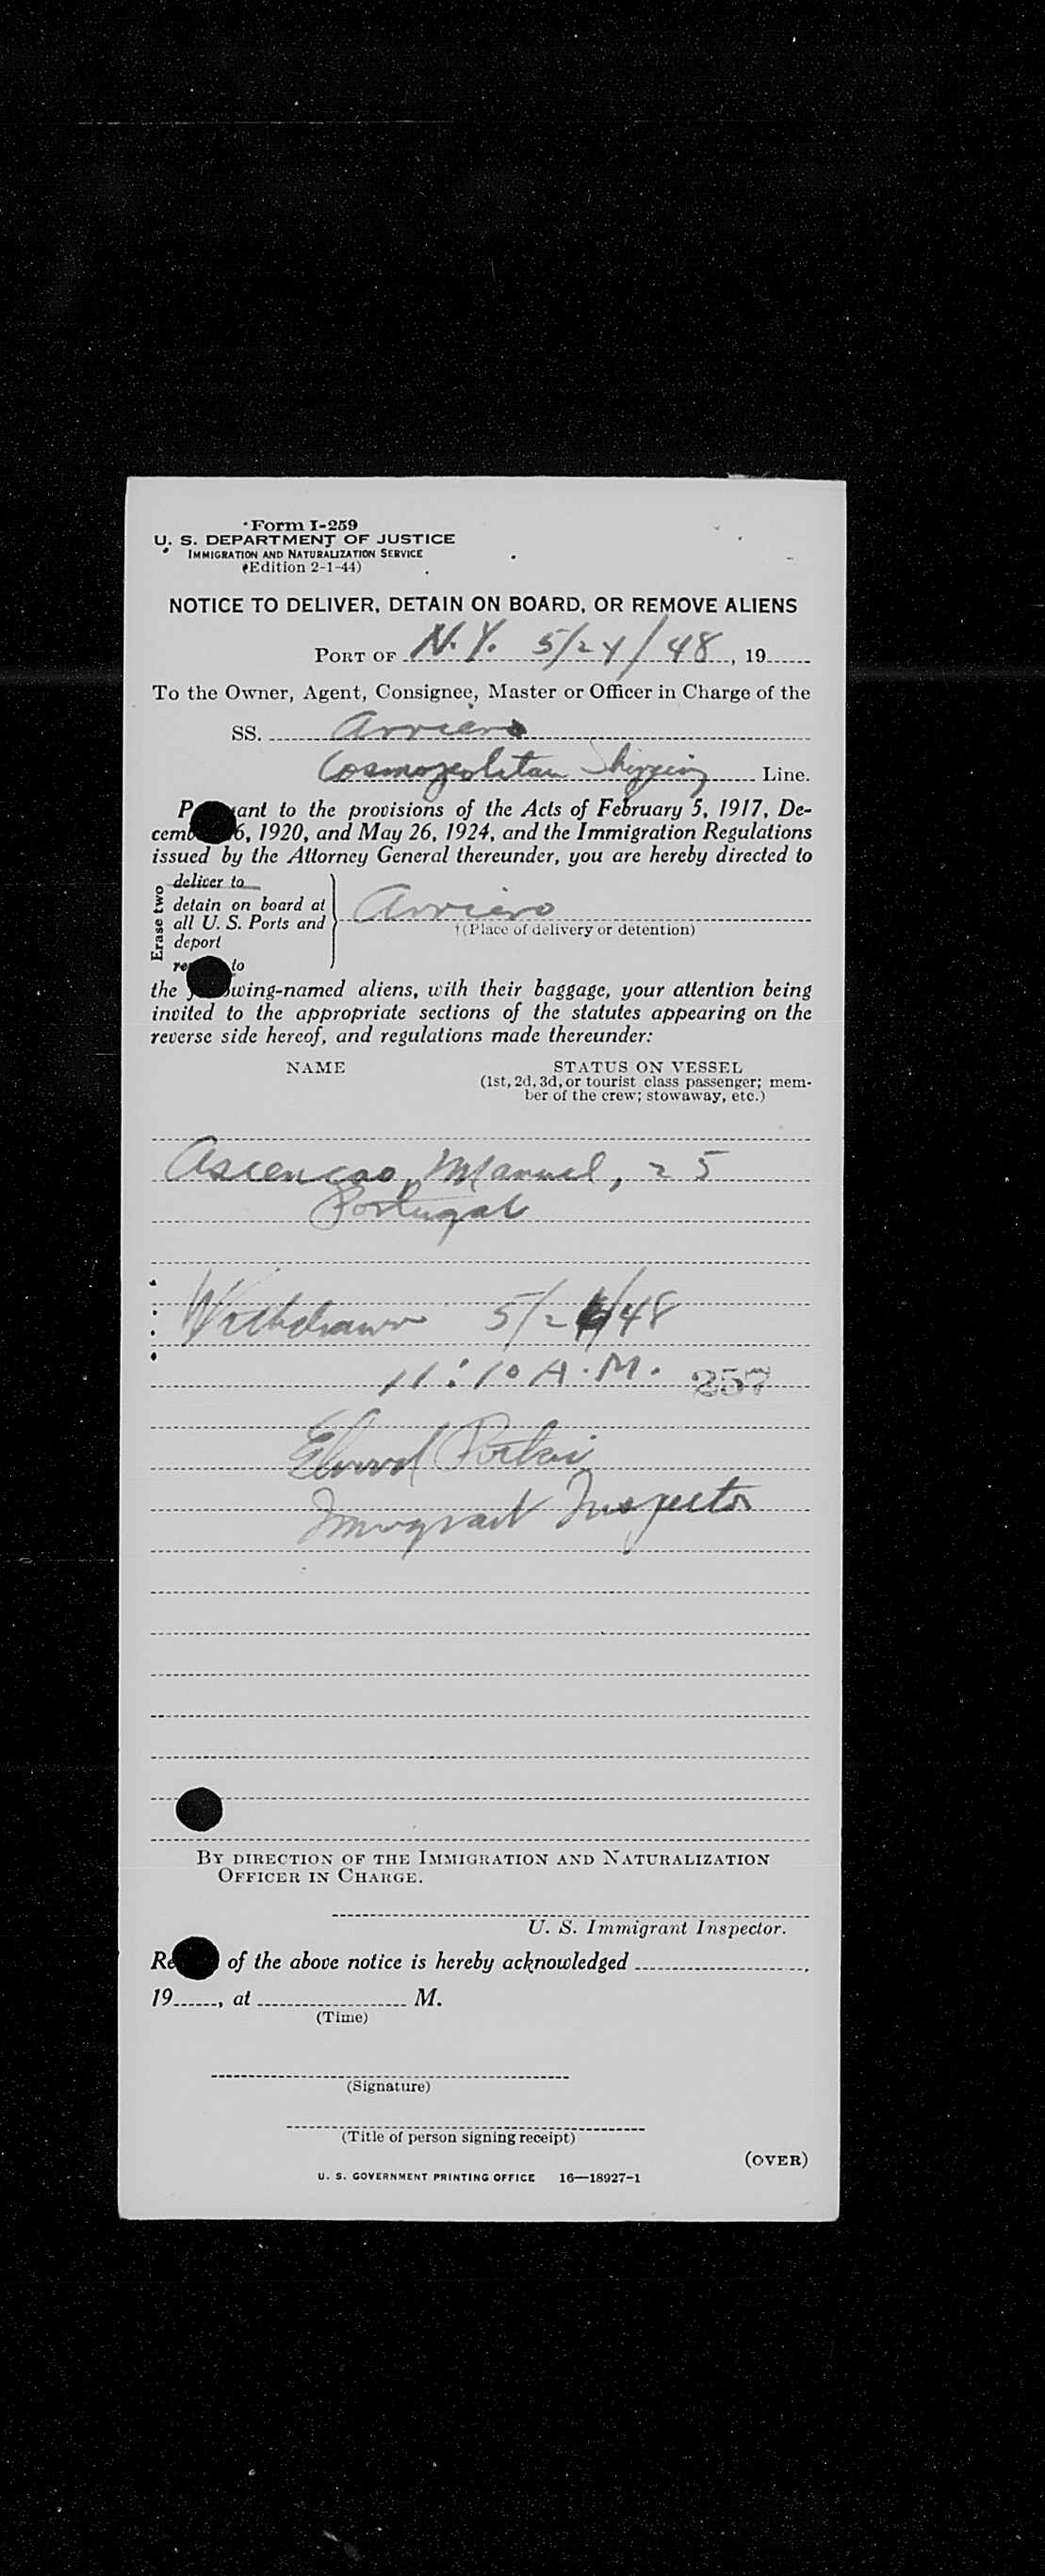 Form I-259
U. S. DEPARTMENT OF JUSTICE
IMMIGRATION AND NATURALIZATION SERVICE
(Edition 2-1-44)
NOTICE TO DELIVER, DETAIN ON BOARD, OR REMOVE ALIENS
PORT OF N.Y. 5/24/48, 19
To the Owner, Agent, Consignee, Master or Officer in Charge of the
SS. Arriero
Cosmopolitan Shipping Line.
P ant to the provisions of the Acts of February 5, 1917, De-
cemb 6, 1920, and May 26, 1924, and the Immigration Regulations
issued by the Attorney General thereunder, you are hereby directed to
Erase two
deliver to
detain on board at
all U. S. Ports and
deport
re to
Arriero
†(Place of delivery or detention)
the wing-named aliens, with their baggage, your attention being
invited to the appropriate sections of the statutes appearing on the
reverse side hereof, and regulations made thereunder:
NAME STATUS ON VESSEL
(1st, 2d, 3d, or tourist class passenger; mem-
ber of the crew; stowaway, etc.)
Ascencao, Manuel, 25
Portugal
Withdrawn 5/26/48
11:10 A.M. 257
Immigrant Inspector
BY DIRECTION OF THE IMMIGRATION AND NATURALIZATION
OFFICER IN CHARGE.
U. S. Immigrant Inspector.
Re of the above notice is hereby acknowledged
19, at M.
(Time)
(Signature)
(Title of person signing receipt)
(OVER)
U. S. GOVERNMENT PRINTING OFFICE 16—18927-1